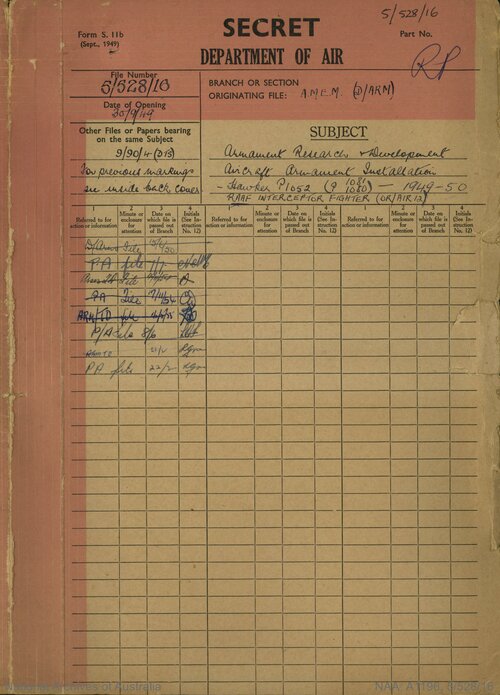 5/528/16
Form S. 11b
(Sept., 1949)
SECRET
DEPARTMENT OF AIR
Part No.
RP
File Number
5/528/16
Date of Opening
30/9/49
BRANCH OR SECTION
ORIGINATING FILE: A.M.E.M. (D/ARM)
Other Files or Papers bearing
on the same Subject
9/90/4 (313)
For previous markings
see inside back cover
SUBJECT
Armament Research & Development
Aircraft Armament Installation
- Hawker P1052 (P 1081 1080) - 1949-50
RAAF INTERCEPTOR FIGHTER (OR/AIR.12)
1 2 3 4 1 2 3 4 1 2 3 4
Referred to for action or information Minute or enclosure for attention Date on which file is passed out of Branch Initials (See Instruction No. 12) Referred to for action or information Minute or enclosure for attention Date on which file is passed out of Branch Initials (See Instruction No. 12) Referred to for action or information Minute or enclosure for attention Date on which file is passed out of Branch Initials (See Instruction No. 12)
File
PA file
File
PA File
ARM/TD file
P/A file 8/6
PA file 22/2
National Archives of Australia
NAA: A1196, 5/528/16